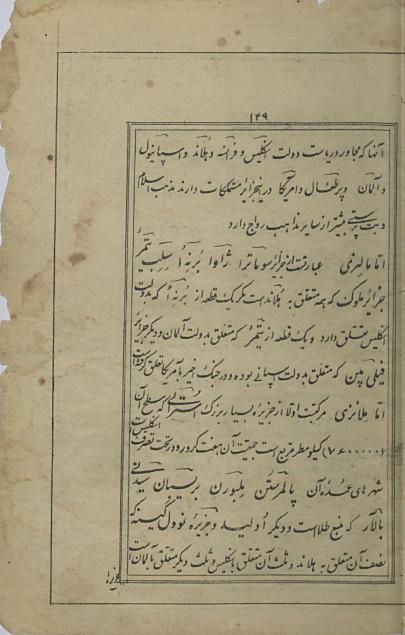 ۱۴۹
آنها که مجاور دریاست دولت انگلیس و فرانسه و هلاند و اسپانیول
و آلمان و پرطغال و امریکا در اینجزائر مستملکات دارند مذهب اسلام
و بت پرستی بیشتر از سایر مذاهب رواج دارد
اما مالزی عبارتست از جزائر سوماترا ژاوا برنه آ سلب تیمر
جزائر ملوک که همه متعلق به هلاند است مگر یک قطعه از برنه آ که بدولت
انگلیس تعلق دارد و یک قطعه از تیمر که متعلق بدولت آلمان و دیگر جزائر
فیلی پین که متعلق بدولت اسپانی بوده و در جنگ اخیر بآمریکا تعلق گرفته است
اما ملانزی مرکبست اولا از جزیره بسیار بزرگ سترالی که سطح آن
(۷۶۰۰۰۰۰) کیلومطر مربع است جمعیت آن هفت کرور و در تحت تصرف انگلیس است
شهرهای عمده آن پالمرستن ملبورن بریسبان سیدنی
بالار که منبع طلاست و دیگر آدلید و جزیره نوول گینه که
نصف آن متعلق به هلاند و ثلث آن متعلق بانگلیس و ثلث دیگر متعلق بآلمان است
جزیره